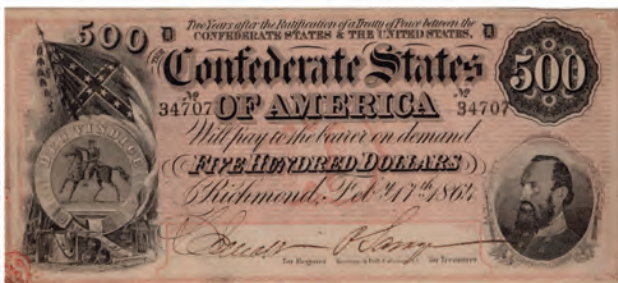 Two Years after the Ratification of a Treaty of Peace between the
500 D CONFEDERATE STATES & THE UNITED STATES, D
THE
Confederate States 500
Nº 34707 OF AMERICA Nº 34707
Will pay to the bearer on demand
FIVE HUNDRED DOLLARS
Richmond, Feby. 17th 1864
DEO VINDICE
for Register for Treasurer